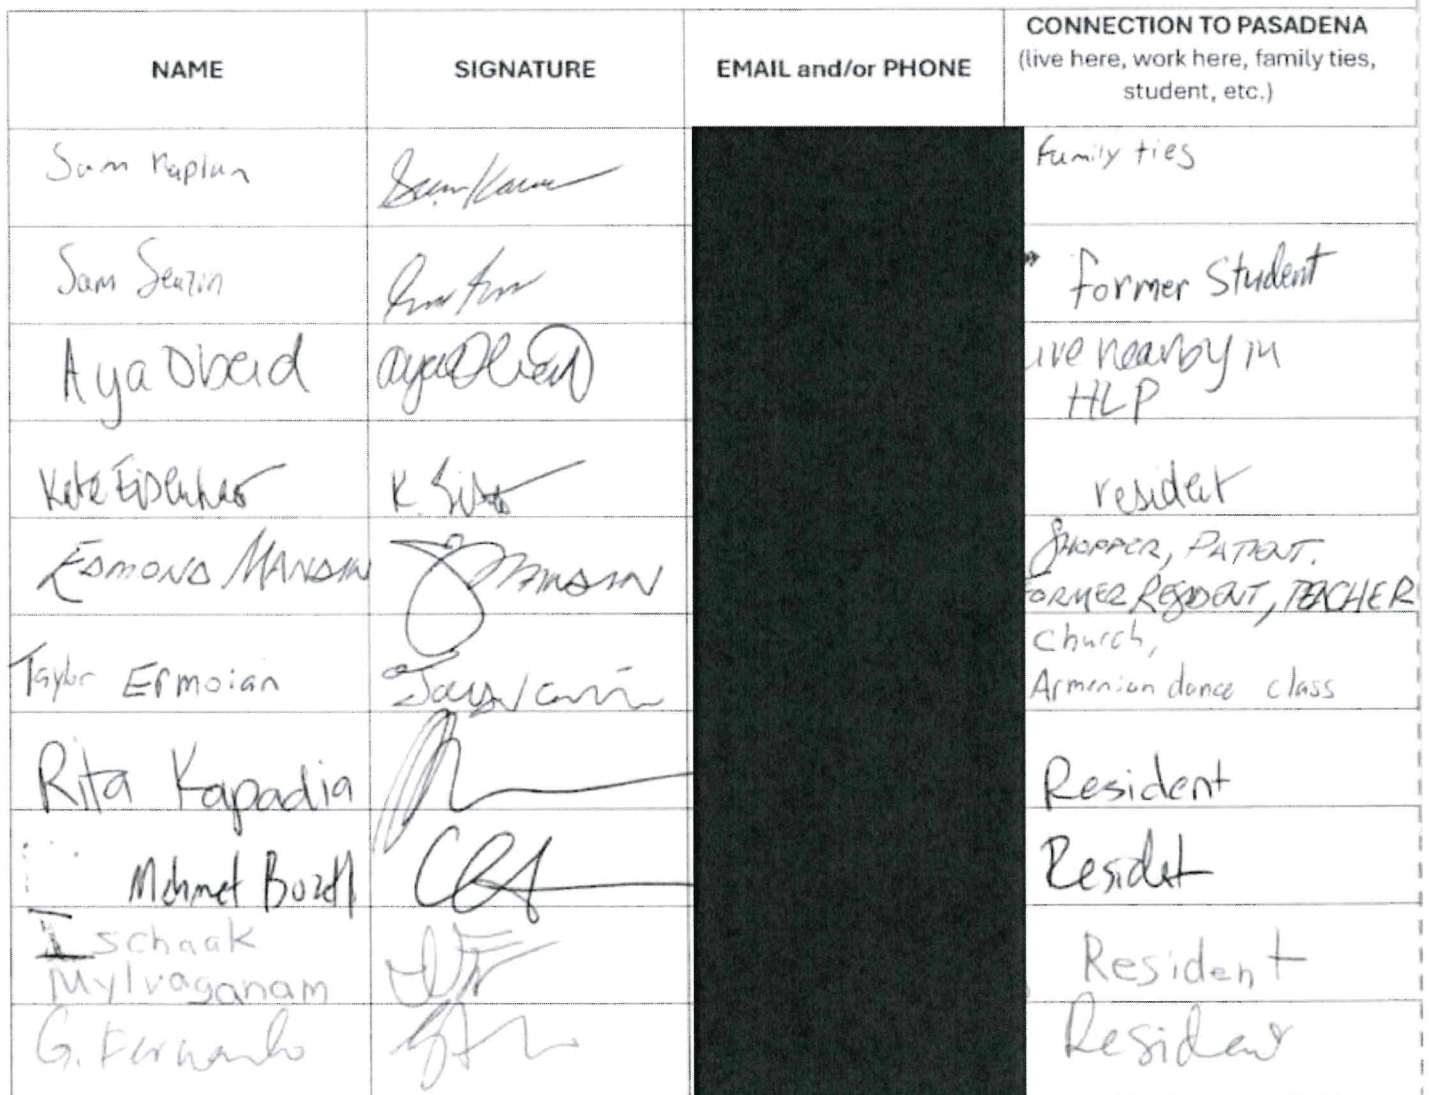 NAME
SIGNATURE
EMAIL and/or PHONE
CONNECTION TO PASADENA
(live here, work here, family ties,
student, etc.)
Sam Kaplan
Family ties
Sam
former Student
Aya Obeid
Aya Obeid
ive nearby in
HLP
Kate
K.
resident
EDMOND
SHOPPER, PATIENT.
FORMER RESIDENT, TEACHER
Taylor Ermoian
church,
Armenian dance class
Rita Kapadia
Resident
Mehmet
Resident
Ischaak
Mylvaganam
Resident
G. Fernando
Resident